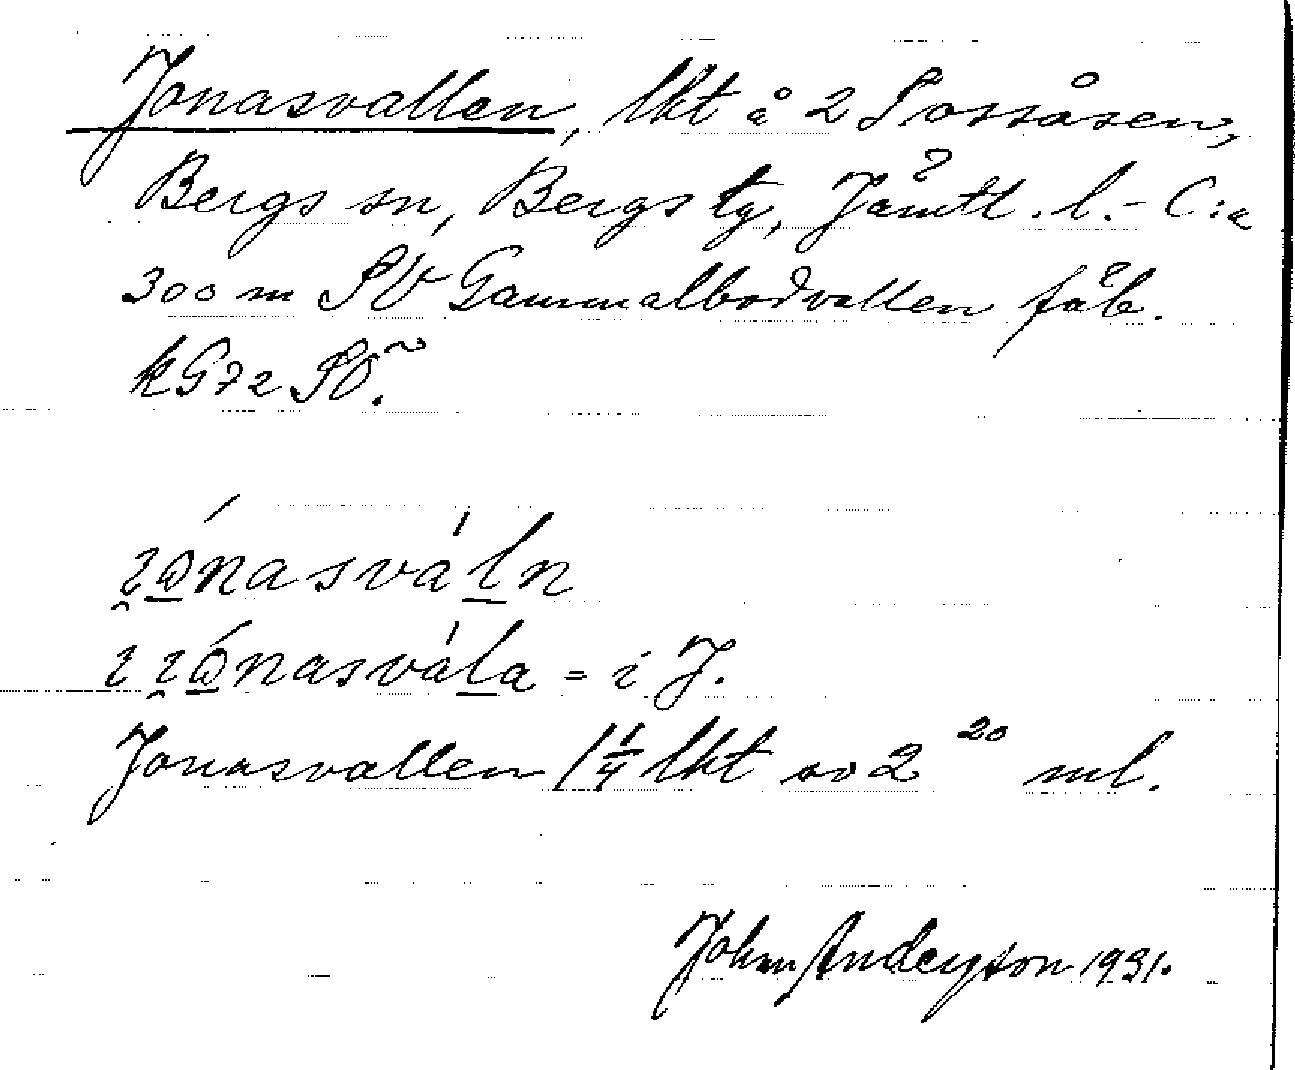 Jonasvallen, lkt å 2 Tossåsen,
Bergs sn, Bergs tg, Jämtl. l.- C:a
300 m SV Gammalbodvallen fäb.
kG72 SV.
ɪ̯ǫ́nasváḻn
ɪ ɪ̯ǫ́nasváḻa = i J.
Jonasvallen 1 1/4 lkt av 2²⁰ ml.
John Andersson 1931.